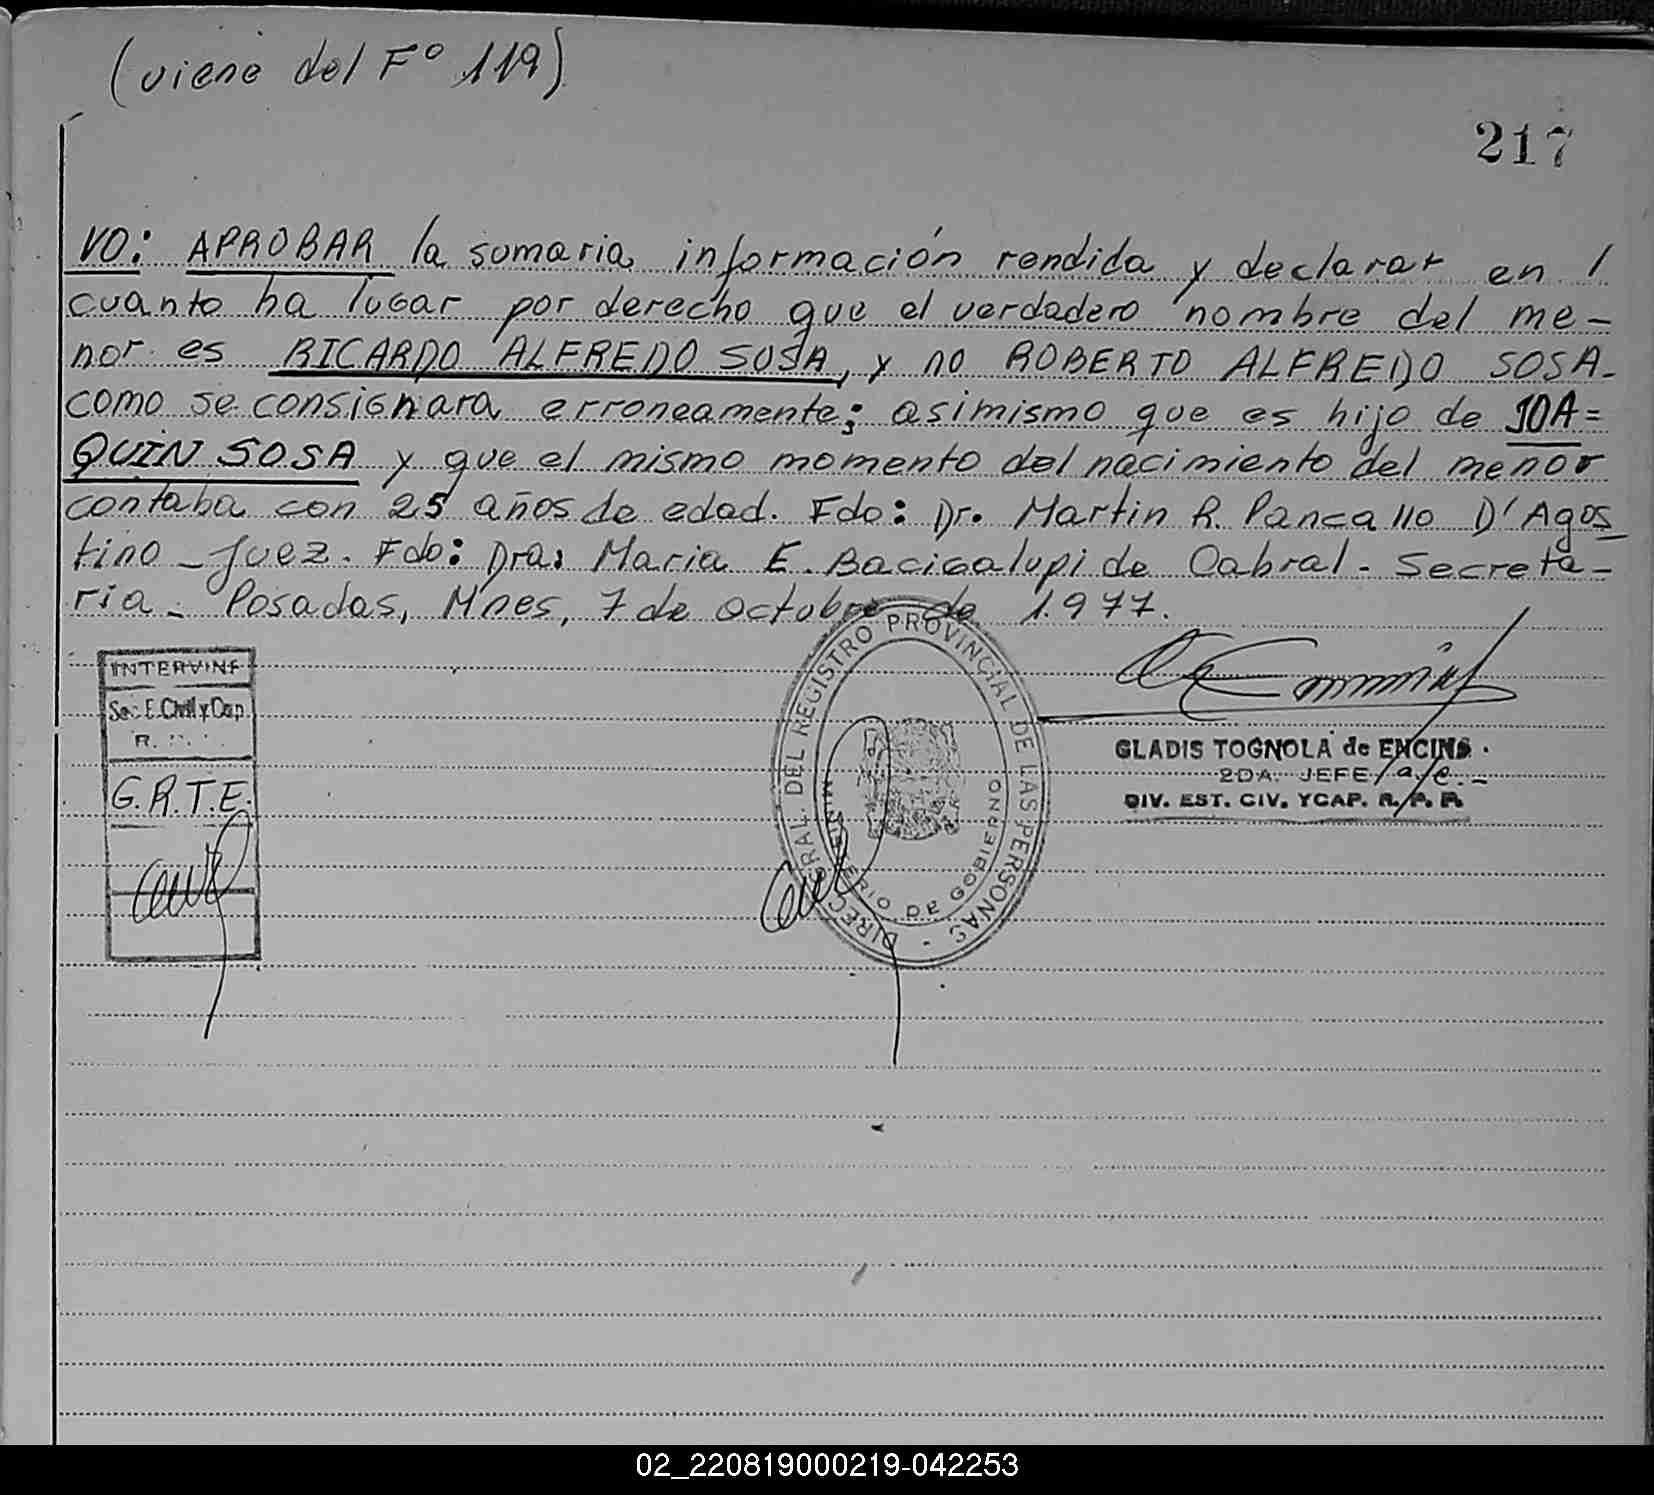 (viene del Fº 119)
217
VO: APROBAR la sumaria información rendida y declarar en /
cuanto ha lugar por derecho que el verdadero nombre del me-
nor es RICARDO ALFREDO SOSA, y no ROBERTO ALFREDO SOSA-
como se consignara erroneamente; asimismo que es hijo de JOA=
QUIN SOSA y que el mismo momento del nacimiento del menor
contaba con 25 años de edad. Fdo: Dr. Martin R. Pancallo D'Agos
tino - Juez. Fdo: Dra: Maria E. Bacigalupi de Cabral - Secreta-
ria - Posadas, Mnes, 7 de octubre de 1.977.
INTERVINE
Sec. E. Civil y Cap
R.
G.R.T.E.
DIREC. GRAL. DEL REGISTRO PROVINCIAL DE LAS PERSONAS -
MINISTERIO DE GOBIERNO
GLADIS TOGNOLA de ENCINA
2DA. JEFE a/c.-
DIV. EST. CIV. Y CAP. R. P. P.
02_220819000219-042253